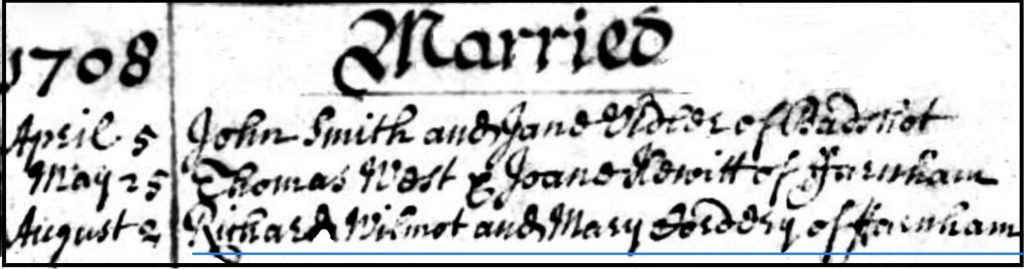 1708 Married
April 5 John Smith and Jane of Badshot
May 25 Thomas West & Joane Hewitt of ffarnham
August 2 Richard Wilmot and Mary of ffarnham